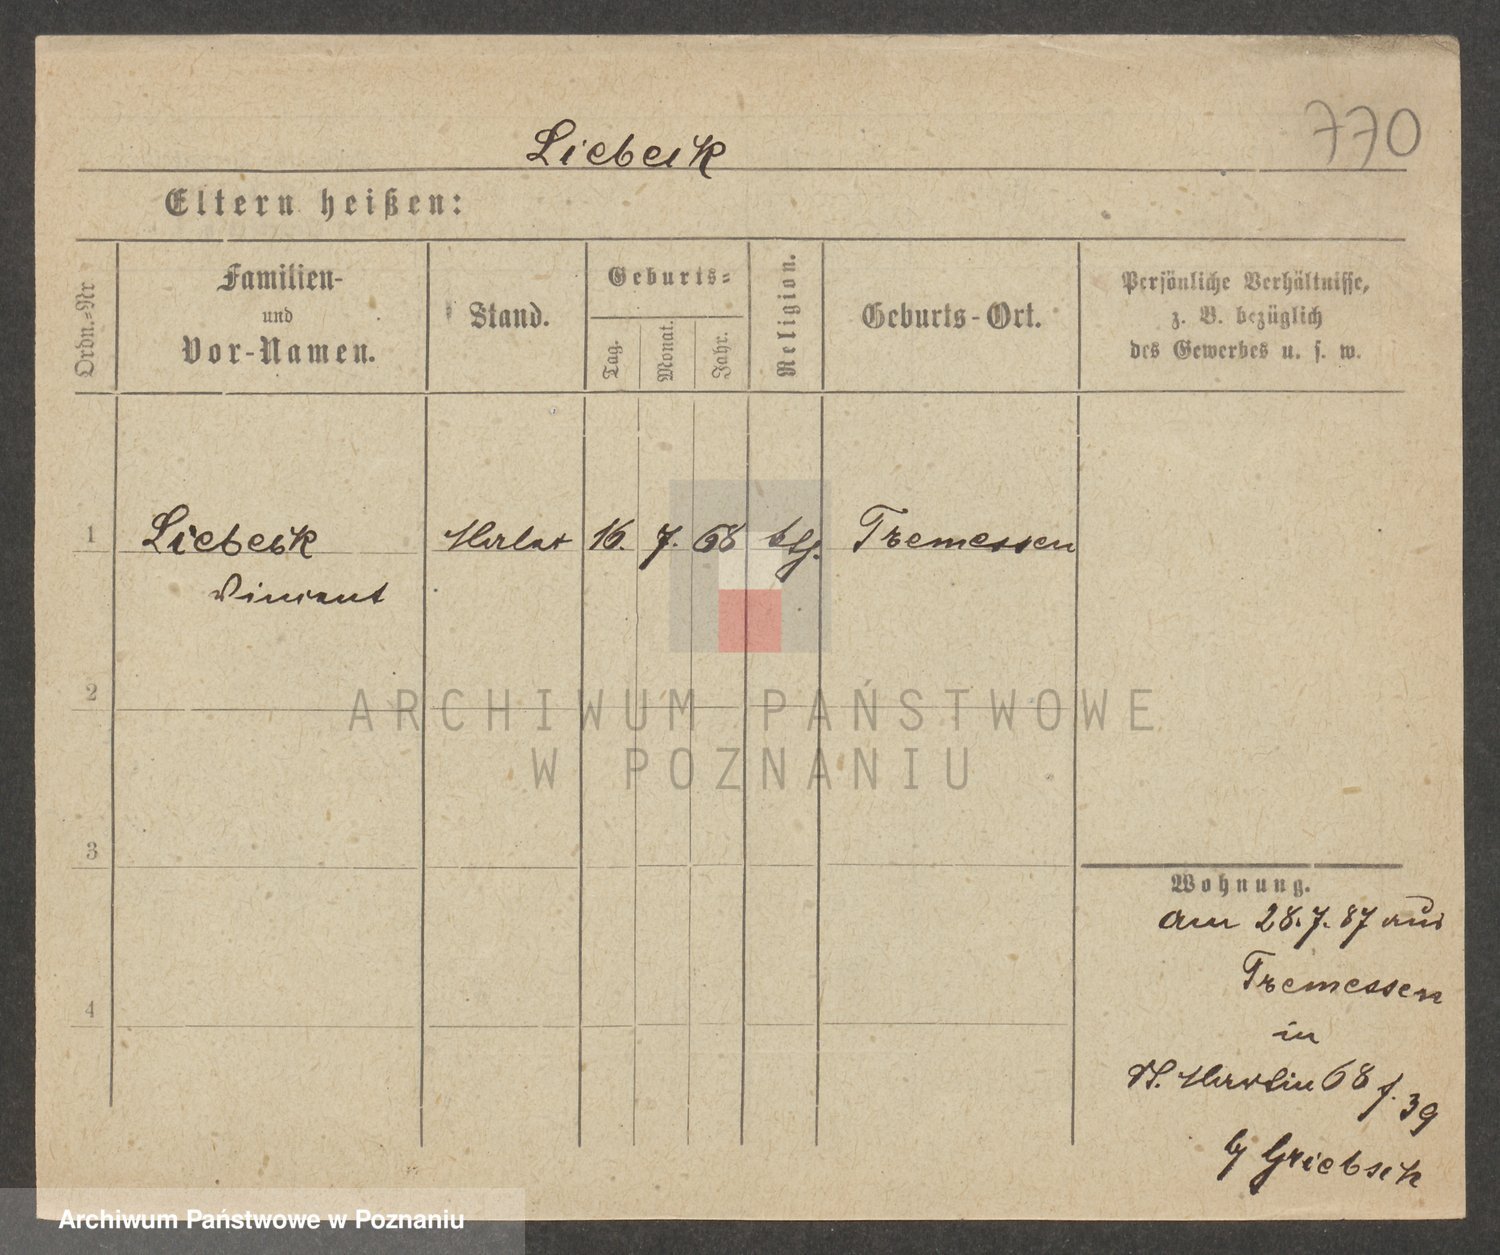 770
Liebeck
Eltern heißen:
Ordn.=Nr
Familien-
und
Vor-Namen.
Stand.
Geburts=
Tag.
Monat.
Jahr.
Religion.
Geburts-Ort.
Persönliche Verhältnisse,
z. B. bezüglich
des Gewerbes u. s. w.
1 Liebeck Maler 16. 7. 68 ktl. Tremessen
Vincent
ARCHIWUM PAŃSTWOWE
W POZNANIU
2
3
4
Wohnung.
am 28.7.87 aus
Tremessen
in
St. Martin 68 f. 39
by Griebsch
Archiwum Państwowe w Poznaniu